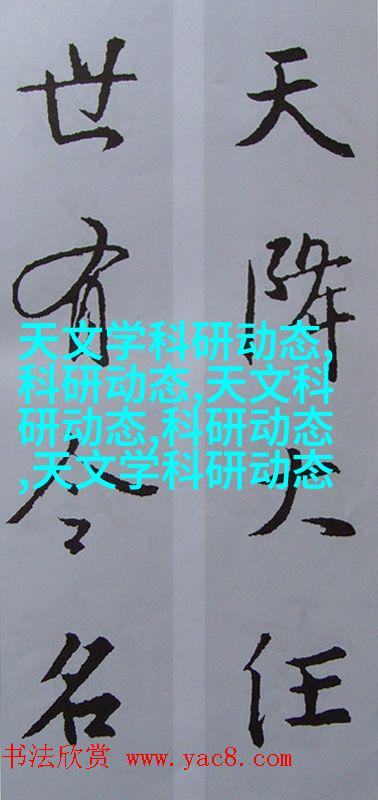 天降大任
世有令名
天文学科研动态,
科研动态,天文科
研动态,科研动态
,天文学科研动态
书法欣赏 www.yac8.com